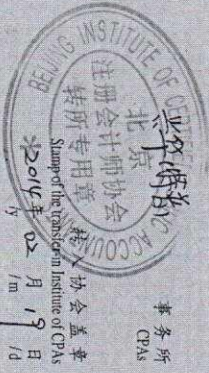 事务所
CPAs
BEIJING INSTITUTE OF CERTIFIED PUBLIC ACCOUNTANTS
北京
注册会计师协会
转所专用章
转入协会盖章
Stamp of the transfer-in Institute of CPAs
2014年 02月 19日
/y /m /d